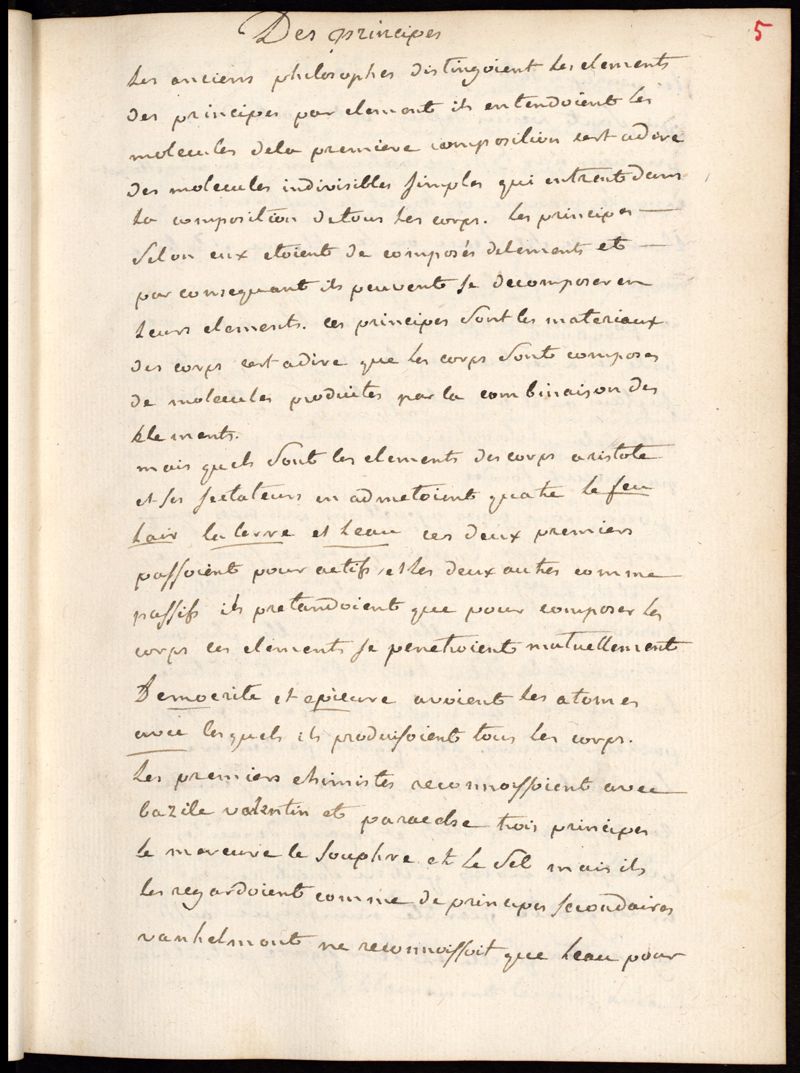 Des principes
5
Les anciens philosophes distingoient les elements
des principes par element ils entendoient les
molecules dela premiere composition cest adire
des molecules indivisibles simples qui entrent dans
la composition detous les corps. les principes —
selon eux etoient de composés delements et —
par consequant ils peuvent se decomposer en
leurs elements. ces principes sont les materiaux
des corps cest adire que les corps sont composes
de molecules produites par la combinaison des
elements.
mais quels sont les elements des corps aristote
et ses sectateurs en admetoient quatre le feu
lair la terre et leau ces deux premiers
passoient pour actifs, et les deux autres comme
passifs ils pretandoient que pour composer les
corps ces elements se penetroient mutuellement
Democrite et epicure avoient les atomes
avec lesquels ils produisoient tous les corps.
Les premiers chimistes reconnoissoient avec
bazile valentin et paracelse trois principes
le mercure le souphre et le sel mais ils
les regardoient comme de principes secondaires
vanhelmont ne reconnoissoit que leau pour